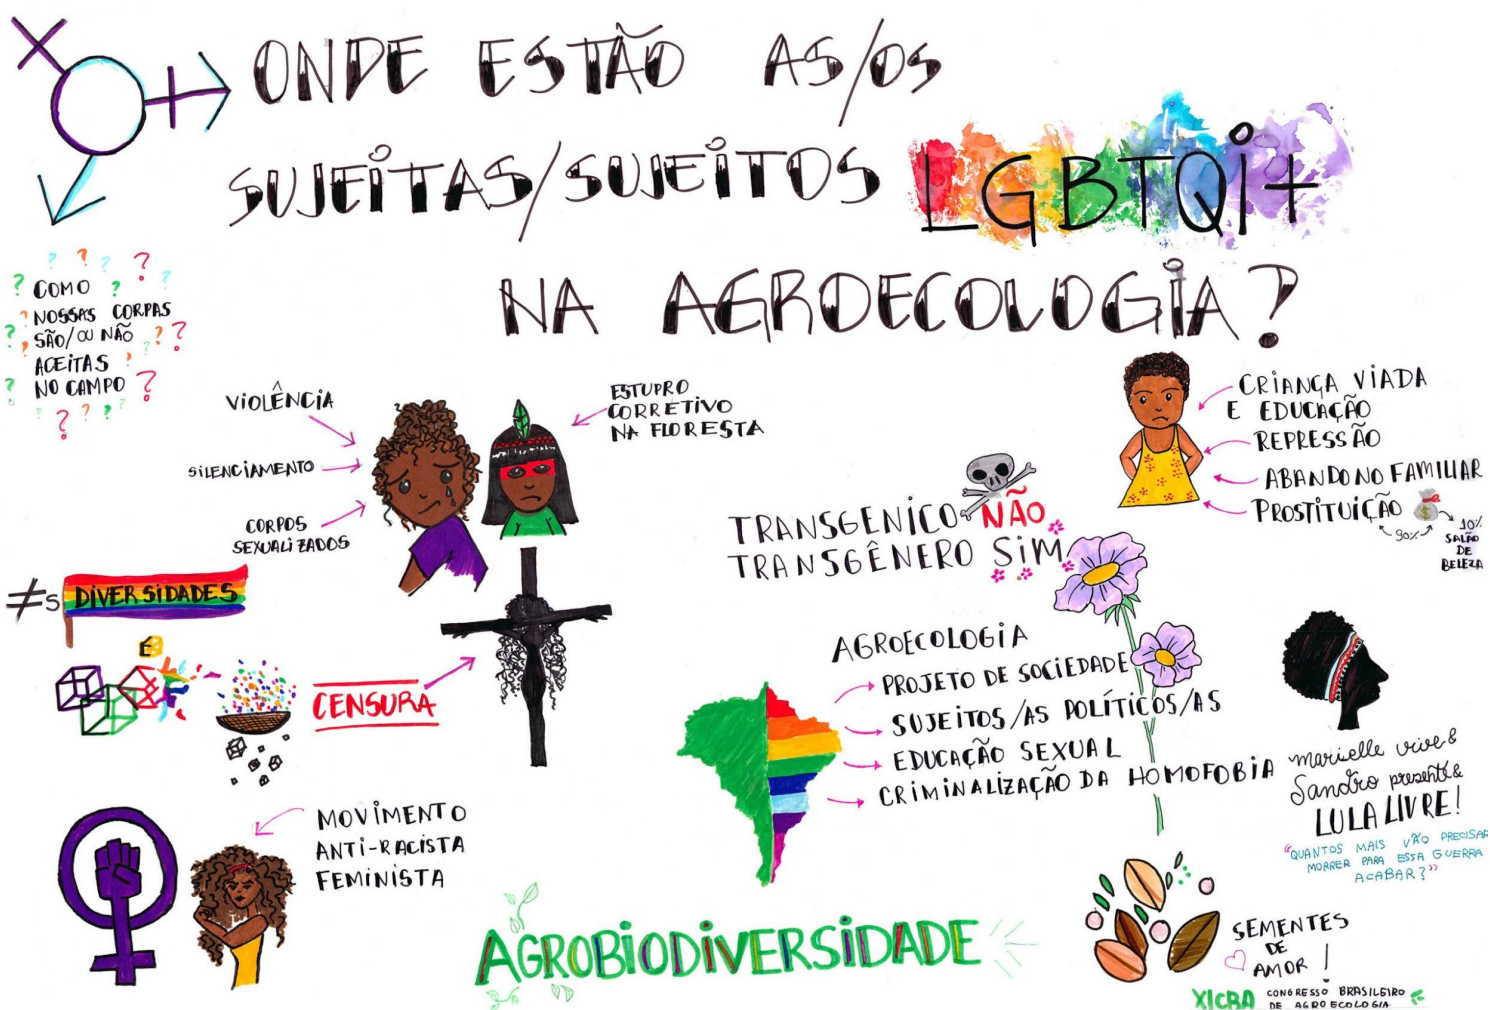 ONDE ESTÃO AS/OS
SUJEITAS/SUJEITOS LGBTQI+
NA AGROECOLOGIA?
? ? ?
? COMO ? ?
? NOSSAS CORPAS
? SÃO/OU NÃO ? ? ?
ACEITAS ?
? NO CAMPO ?
? ? ? ? ?
VIOLÊNCIA
SILENCIAMENTO
CORPOS
SEXUALIZADOS
ESTUPRO
CORRETIVO
NA FLORESTA
CRIANÇA VIADA
E EDUCAÇÃO
REPRESSÃO
ABANDONO FAMILIAR
PROSTITUIÇÃO
90%
10%
SALÃO
DE
BELEZA
TRANSGENICO NÃO
TRANSGÊNERO SIM
≠s DIVERSIDADES
É
CENSURA
AGROECOLOGIA
PROJETO DE SOCIEDADE
SUJEITOS/AS POLÍTICOS/AS
EDUCAÇÃO SEXUAL
CRIMINALIZAÇÃO DA HOMOFOBIA
MOVIMENTO
ANTI-RACISTA
FEMINISTA
marielle vive &
Sandro presente &
LULA LIVRE!
"QUANTOS MAIS VÃO PRECISAR
MORRER PARA ESSA GUERRA
ACABAR?"
AGROBIODIVERSIDADE
SEMENTES
DE
AMOR!
XICBA CONGRESSO BRASILEIRO
DE AGROECOLOGIA